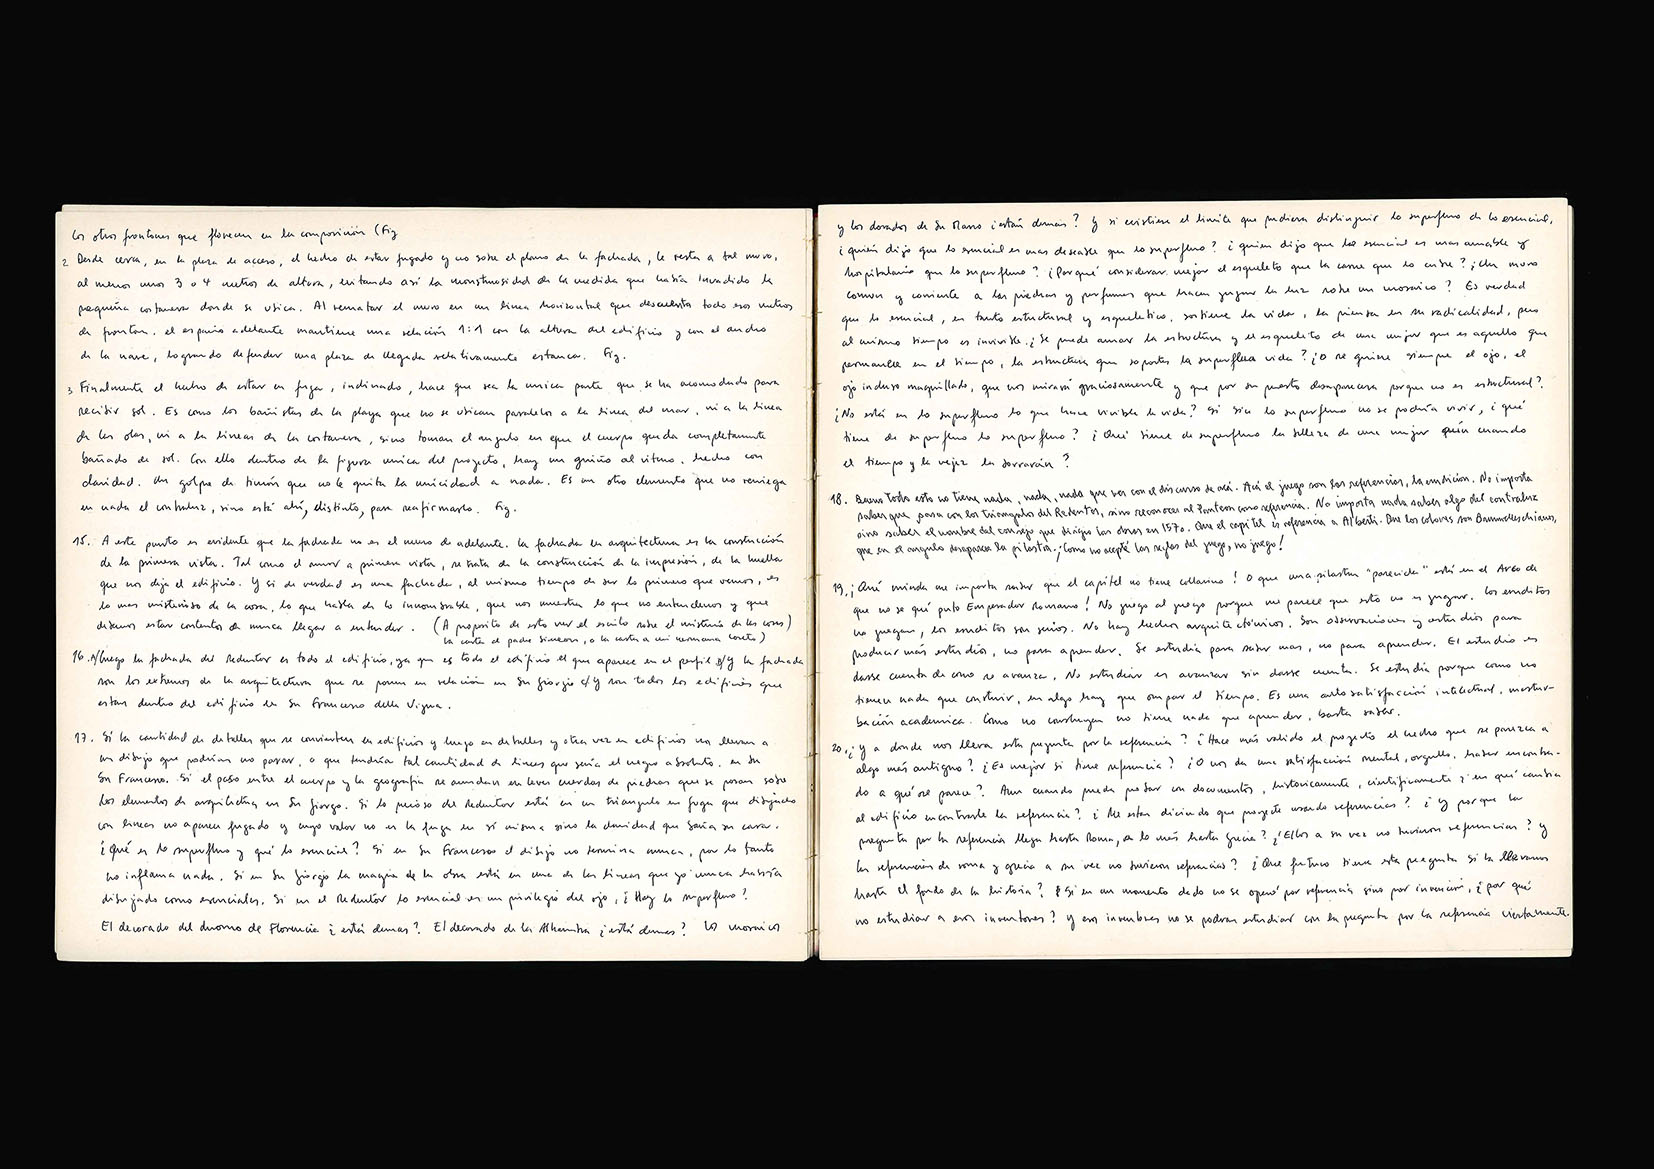 los otros frontones que florecen en la composición (Fig
2 Desde cerca, en la plaza de acceso, el hecho de estar fugado y no sobre el plano de la fachada, le resta a tal muro,
al menos unos 3 o 4 metros de altura, evitando así la monstruosidad de la medida que habría invadido la
pequeña costanera donde se ubica. Al rematar el muro en una linea horizontal que descuenta todo esos metros
de fronton. el espacio adelante mantiene una relación 1:1 con la altura del edificio y con el ancho
de la nave, logrando defender una plaza de llegada relativamente estanca. Fig.
3 Finalmente el hecho de estar en fuga, inclinado, hace que sea la unica parte que se ha acomodado para
recibir sol. Es como los bañistas de la playa que no se ubican paralelos a la linea del mar, ni a la linea
de las olas, ni a la lineas de la costanera, sino toman el angulo en que el cuerpo queda completamente
bañado de sol. Con ello dentro de la figura unica del proyecto, hay un guiño al ritmo. hecho con
claridad. Un golpe de timón que no le quita la unicidad a nada. Es un otro elemento que no reniega
en nada el contraluz, sino está ahí, distinto, para reafirmarlo. Fig.
15. A este punto es evidente que la fachada no es el muro de adelante. La fachada en arquitectura es la construcción
de la primera vista. Tal como el amor a primera vista, se trata de la construcción de la impresión, de la huella
que nos deja el edificio. Y si de verdad es una fachada, al mismo tiempo de ser lo primero que vemos, es
lo mas misterioso de la cosa, lo que habla de lo innombrable, que nos muestra lo que no entendemos y que
debemos estar contentos de nunca llegar a entender. (A proposito de esto ver el escrito sobre el misterio de las cosas)
la carta al padre Simeon, o la carta a mi hermana Loreto)
16. Luego la fachada del Redentor es todo el edificio, ya que es todo el edificio el que aparece en el perfil b/y la fachada
son los extremos de la arquitectura que se ponen en relación en Sn Giorgio c/y son todos los edificios que
estan dentro del edificio en Sn Francesco della Vigna.
17. Si la cantidad de detalles que se convierten en edificios y luego en detalles y otra vez en edificios nos llevan a
un dibujo que podrian no parar, o que tendría tal cantidad de lineas que sería el negro absoluto. en Sn
Sn Francesco. Si el peso entre el cuerpo y la geografia se anudan en leves cuerdas de piedras que se posan sobre
los elementos de arquitectura en Sn Giorgo. Si lo precioso del Redentor está en un triangulo en fuga que dibujado
con lineas no aparece fugado y cuyo valor no es la fuga en sí misma sino la claridad que baña su cara.
¿Qué es lo superfluo y qué lo esencial? Si en Sn Francesco el dibujo no termina nunca, por lo tanto
no inflama nada. Si en Sn Giorgo la magia de la obra está en una de las lineas que yo nunca habría
dibujado como esenciales. Si en el Redentor lo esencial es un privilegio del ojo, ¿Hay lo superfluo?
El decorado del duomo de Florencia ¿está demas? El decorado de la Alhambra ¿está demas? Los mosaicos
y los dorados de Sn Marco ¿están demas? Y si existiese el limite que pudiera distinguir lo superfluo de lo esencial,
¿quién dijo que lo esencial es mas deseable que lo superfluo? ¿quien dijo que lo esencial es mas amable y
hospitalario que lo superfluo? ¿Porqué considerar mejor el esqueleto que la carne que lo cubre? ¿Un muro
comun y corriente a las piedras y perfumes que hacen jugar la luz sobre un mosaico? Es verdad
que lo esencial, en tanto estructural y esqueletico. sostiene la vida, la piensa en su radicalidad, pero
al mismo tiempo es invivible. ¿Se puede amar la estructura y el esqueleto de una mujer que es aquello que
permanece en el tiempo, la estructura que soporta la superflua vida? ¿O se quiere siempre el ojo, el
ojo incluso maquillado, que nos mirará graciosamente y que por supuesto desaparecera porque no es estructural?
¿No está en lo superfluo lo que hace vivible la vida? Si sin lo superfluo no se podría vivir, ¿qué
tiene de superfluo lo superfluo? ¿Qué tiene de superfluo la belleza de una mujer aún cuando
el tiempo y la vejez la borrarán?
18. Bueno todo esto no tiene nada, nada, nada que ver con el discurso de acá. Acá el juego son las referencias, la erudición. No importa
saber que pasa con los triangulos del Redentor, sino reconocer al Panteon como referencia. No importa nada saber algo del contraluz
sino saber el nombre del consejo que dirigió las obras en 1570. Que el capitel es referencia a Alberti. Que los colores son Brunelleschianos,
que en el angulo desaparece la pilastra. ¡Como no acepté las reglas del juego, no juego!
19. ¡Qué mierda me importa saber que el capitel no tiene collarino! O que una pilastra "parecida" está en el Arco de
que no se qué puto Emperador Romano! No juego al juego porque me parece que esto no es jugar. Los eruditos
no juegan, los eruditos son serios. No hay hechos arquitectónicos. Son observaciones y estudios para
producir más estudios, no para aprender. Se estudia para saber mas, no para aprender. El estudio es
darse cuenta de como se avanza. No estudiar es avanzar sin darse cuenta. Se estudia porque como no
tienen nada que construir, en algo hay que ocupar el tiempo. Es una auto satisfacción intelectual, mastur-
bación academica. Como no construyen no tiene nada que aprender, basta saber.
20. ¿Y a donde nos lleva esta pregunta por la referencia? ¿Hace más valido el proyecto el hecho que se parezca a
algo más antiguo? ¿Es mejor si tiene referencia? ¿O nos da una satisfacción mental, orgullo, haber encontra-
do a qué se parece? Aun cuando pueda probar con documentos, historicamente, cientificamente ¿en qué cambia
al edificio encontrarle la referencia? ¿Me estan diciendo que proyecte usando referencias? ¿Y porque la
pregunta por la referencia llega hasta Roma, o lo más hasta Grecia? ¿Ellos a su vez no tuvieron referencias? y
las referencias de roma y grecia a su vez no tuvieron referencias? ¿Que futuro tiene esta pregunta si la llevamos
hasta el fondo de la historia? Si en un momento dado no se operó por referencia sino por invención, ¿por qué
no estudiar a esos inventores? y esos inventores no se podran estudiar con la pregunta por la referencia ciertamente.